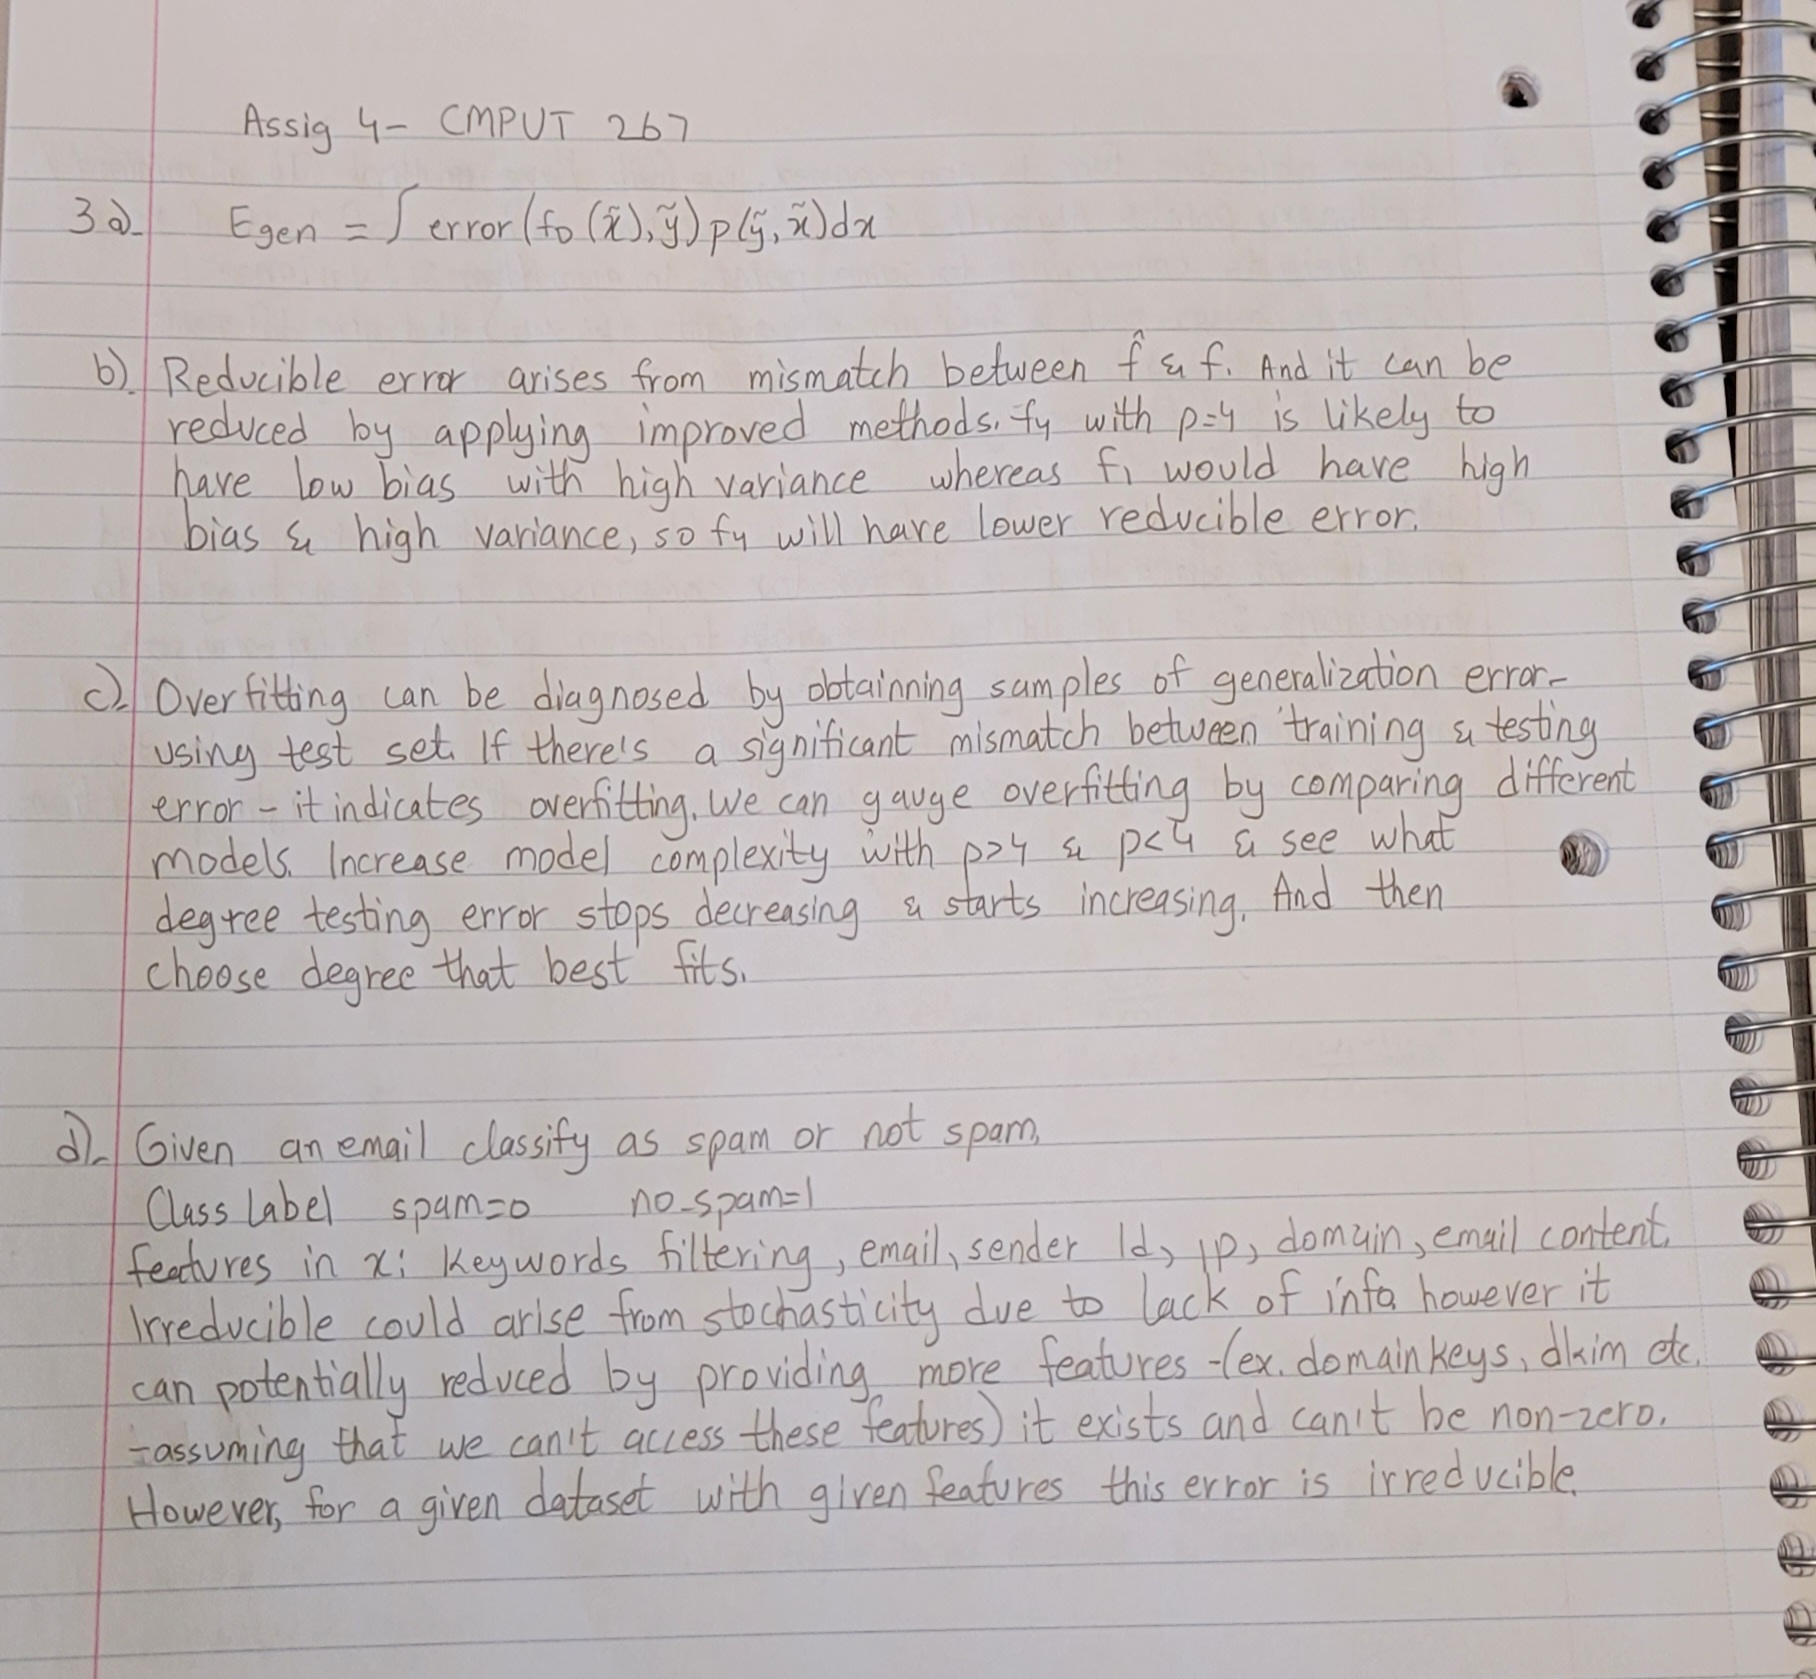 Assig 4- CMPUT 267
3a. Egen = ∫ error(f_D (x̃), ỹ) p(ỹ, x̃)dx
b). Reducible error arises from mismatch between f̂ & f. And it can be
reduced by applying improved methods. f4 with p=4 is likely to
have low bias with high variance whereas f1 would have high
bias & high variance, so f4 will have lower reducible error.
c). Overfitting can be diagnosed by obtainning samples of generalization error-
using test set. If there's a significant mismatch between training & testing
error - it indicates overfitting. We can gauge overfitting by comparing different
models. Increase model complexity with p>4 & p<4 & see what
degree testing error stops decreasing & starts increasing. And then
choose degree that best fits.
d). Given an email classify as spam or not spam.
Class Label spam=0 no_spam=1
features in x: Keywords filtering, email, sender Id, ip, domain, email content.
Irreducible could arise from stochasticity due to lack of info. however it
can potentially reduced by providing more features -(ex. domainkeys, dkim etc.
-assuming that we can't access these features) it exists and can't be non-zero.
However, for a given dataset with given features this error is irreducible.